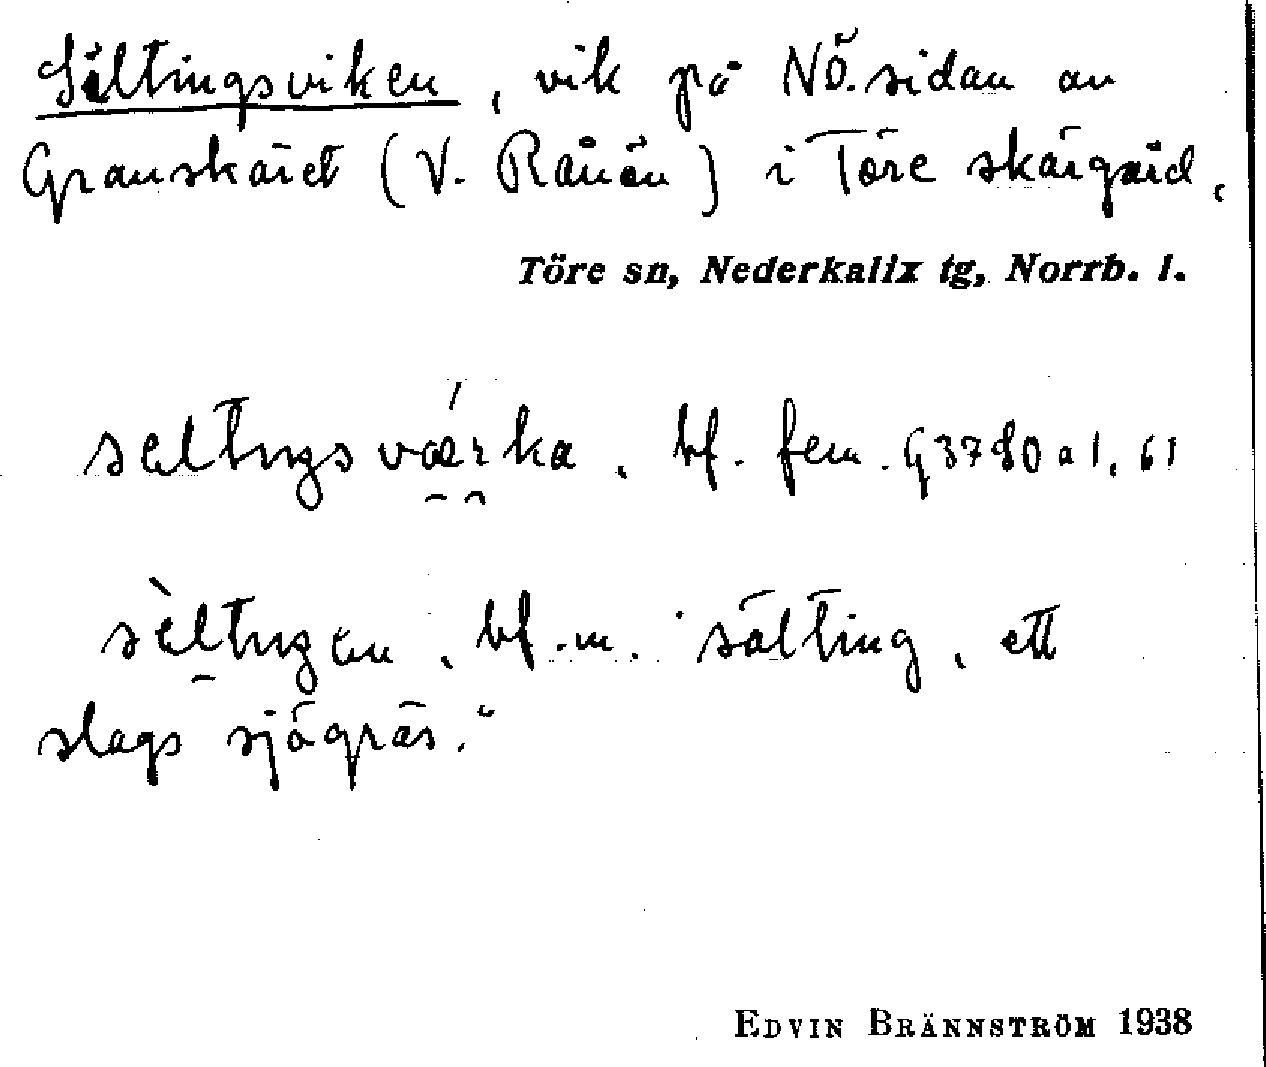 Sältingsviken, vik på NÖ.sidan av
Granskäret (V. Rånön) i Töre skärgård.
Töre sn, Nederkalix tg, Norrb. l.
bf. fem.
bf.m. "sälting, ett
slags sjögräs."
EDVIN BRÄNNSTRÖM 1938